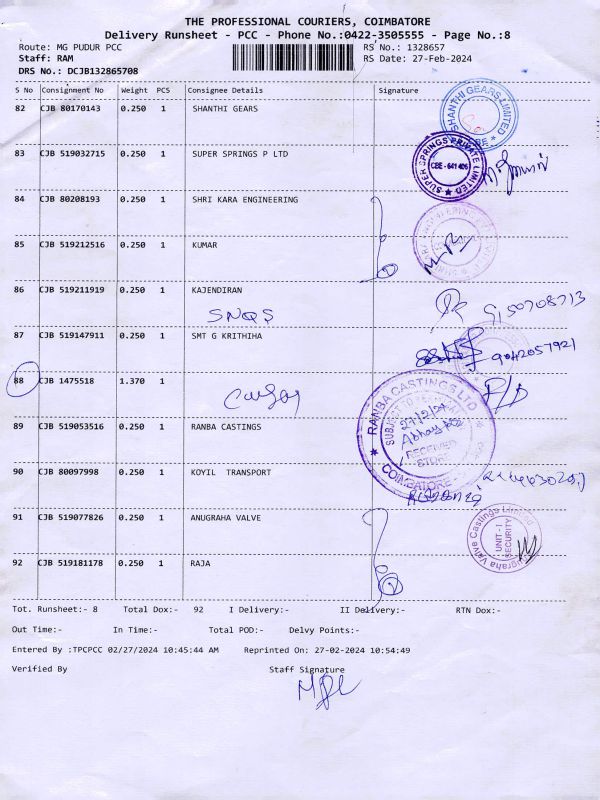 THE PROFESSIONAL COURIERS, COIMBATORE
Delivery Runsheet - PCC - Phone No.:0422-3505555 - Page No.:8
Route: MG PUDUR PCC RS No.: 1328657
Staff: RAM RS Date: 27-Feb-2024
DRS No.: DCJB132865708
S No Consignment No Weight PCS Consignee Details Signature
82 CJB 80170143 0.250 1 SHANTHI GEARS
SHANTHI GEARS LIMITED
83 CJB 519032715 0.250 1 SUPER SPRINGS P LTD
SUPER SPRINGS PRIVATE LIMITED
CBE - 641 406
84 CJB 80208193 0.250 1 SHRI KARA ENGINEERING
85 CJB 519212516 0.250 1 KUMAR
86 CJB 519211919 0.250 1 KAJENDIRAN
SNQS
9150708713
87 CJB 519147911 0.250 1 SMT G KRITHIHA
9042057921
88 CJB 1475518 1.370 1
P/D
89 CJB 519053516 0.250 1 RANBA CASTINGS
RANBA CASTINGS LTD
27/2/24
RECEIVED
STORE
COIMBATORE
90 CJB 80097998 0.250 1 KOYIL TRANSPORT
91 CJB 519077826 0.250 1 ANUGRAHA VALVE
Anugraha Valve Castings Limited
UNIT - I
SECURITY
92 CJB 519181178 0.250 1 RAJA
Tot. Runsheet:- 8 Total Dox:- 92 I Delivery:- II Delivery:- RTN Dox:-
Out Time:- In Time:- Total POD:- Delvy Points:-
Entered By :TPCPCC 02/27/2024 10:45:44 AM Reprinted On: 27-02-2024 10:54:49
Verified By Staff Signature